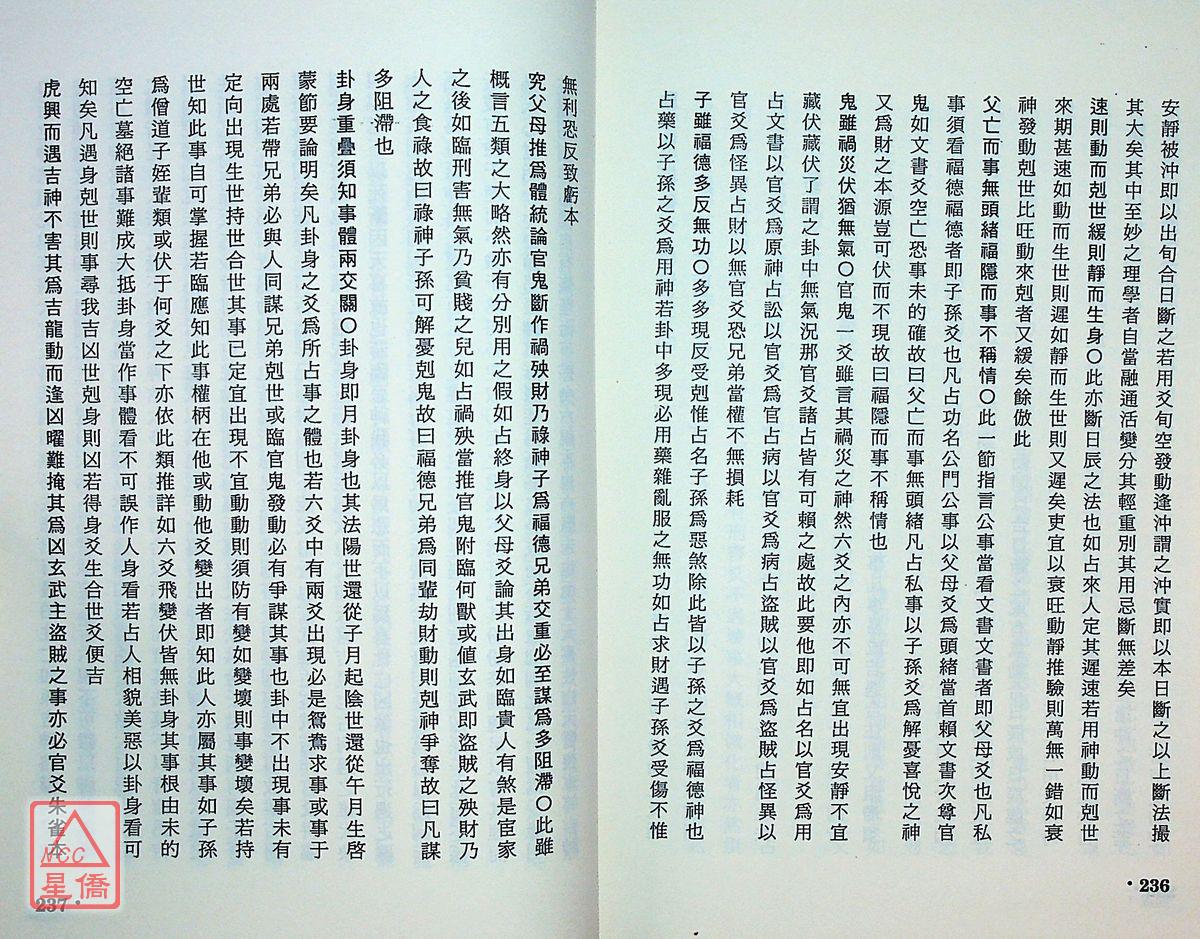 安靜被沖即以出旬合日斷之若用爻旬空發動逢沖謂之沖實即以本日斷之以上斷法撮
其大矣其中至妙之理學者自當融通活變分其輕重別其用忌斷無差矣
速則動而剋世緩則靜而生身○此亦斷日辰之法也如占來人定其遲速若用神動而剋世
來期甚速如動而生世則遲如靜而生世則又遲矣吏宜以衰旺動靜推驗則萬無一錯如衰
神發動剋世比旺動來剋者又緩矣餘倣此
父亡而事無頭緒福隱而事不稱情○此一節指言公事當看文書文書者即父母爻也凡私
事須看福德福德者即子孫爻也凡占功名公門公事以父母爻爲頭緒當首賴文書次尊官
鬼如文書爻空亡恐事未的確故曰父亡而事無頭緒凡占私事以子孫爻爲解憂喜悅之神
又爲財之本源豈可伏而不現故曰福隱而事不稱情也
鬼雖禍災伏猶無氣○官鬼一爻雖言其禍災之神然六爻之內亦不可無宜出現安靜不宜
藏伏藏伏了謂之卦中無氣況那官爻諸占皆有可賴之處故此要他即如占名以官爻爲用
占文書以官爻爲原神占訟以官爻爲官占病以官爻爲病占盜賊以官爻爲盜賊占怪異以
官爻爲怪異占財以無官爻恐兄弟當權不無損耗
子雖福德多反無功○多多現反受剋惟占名子孫爲惡煞除此皆以子孫之爻爲福德神也
占藥以子孫之爻爲用神若卦中多現必用藥雜亂服之無功如占求財遇子孫爻受傷不惟
•236
無利恐反致虧本
究父母推爲體統論官鬼斷作禍殃財乃祿神子爲福德兄弟交重必至謀爲多阻滯○此雖
概言五類之大略然亦有分別用之假如占終身以父母爻論其出身如臨貴人有煞是宦家
之後如臨刑害無氣乃貧賤之兒如占禍殃當推官鬼附臨何獸或値玄武即盜賊之殃財乃
人之食祿故曰祿神子孫可解憂剋鬼故曰福德兄弟爲同輩劫財動則剋神爭奪故曰凡謀
多阻滯也
卦身重疊須知事體兩交關○卦身即月卦身也其法陽世還從子月起陰世還從午月生啓
蒙節要論明矣凡卦身之爻爲所占事之體也若六爻中有兩爻出現必是鴛鴦求事或事于
兩處若帶兄弟必與人同謀兄弟剋世或臨官鬼發動必有爭謀其事也卦中不出現事未有
定向出現生世持世合世其事已定宜出現不宜動動則須防有變如變壞則事變壞矣若持
世知此事自可掌握若臨應知此事權柄在他或動他爻變出者即知此人亦屬其事如子孫
爲僧道子姪輩類或伏于何爻之下亦依此類推詳如六爻飛變伏皆無卦身其事根由未的
空亡墓絕諸事難成大抵卦身當作事體看不可誤作人身看若占人相貌美惡以卦身看可
知矣凡遇身剋世則事尋我吉凶世剋身則凶若得身爻生合世爻便吉
虎興而遇吉神不害其爲吉龍動而逢凶曜難掩其爲凶玄武主盜賊之事亦必官爻朱雀本
237•
NCC
星僑